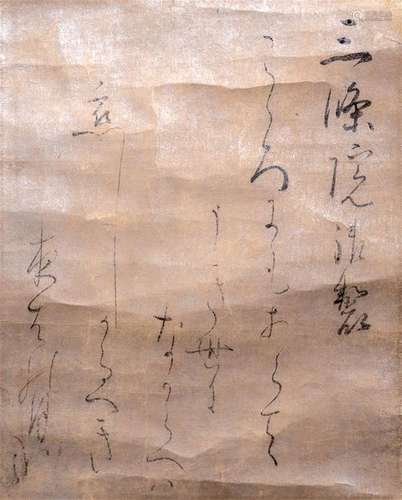 三條院御製
こゝろにもあらて
うき世に
なからへは
恋しかるへき
夜